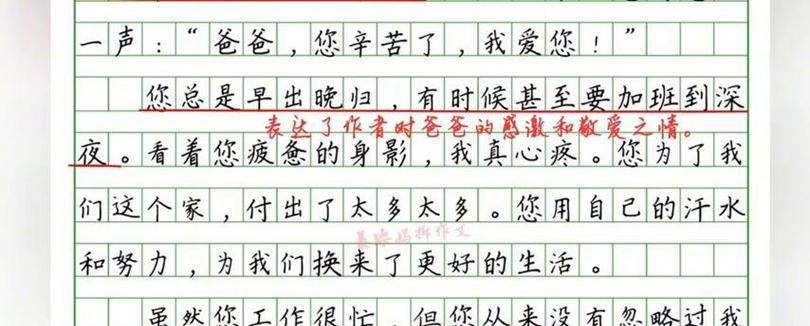 一声：“爸爸，您辛苦了，我爱您！”
您总是早出晚归，有时候甚至要加班到深
表达了作者对爸爸的感激和敬爱之情。
夜。看着您疲惫的身影，我真心疼。您为了我
们这个家，付出了太多太多。您用自己的汗水
和努力，为我们换来了更好的生活。
虽然您工作很忙，但您从来没有忽略过我